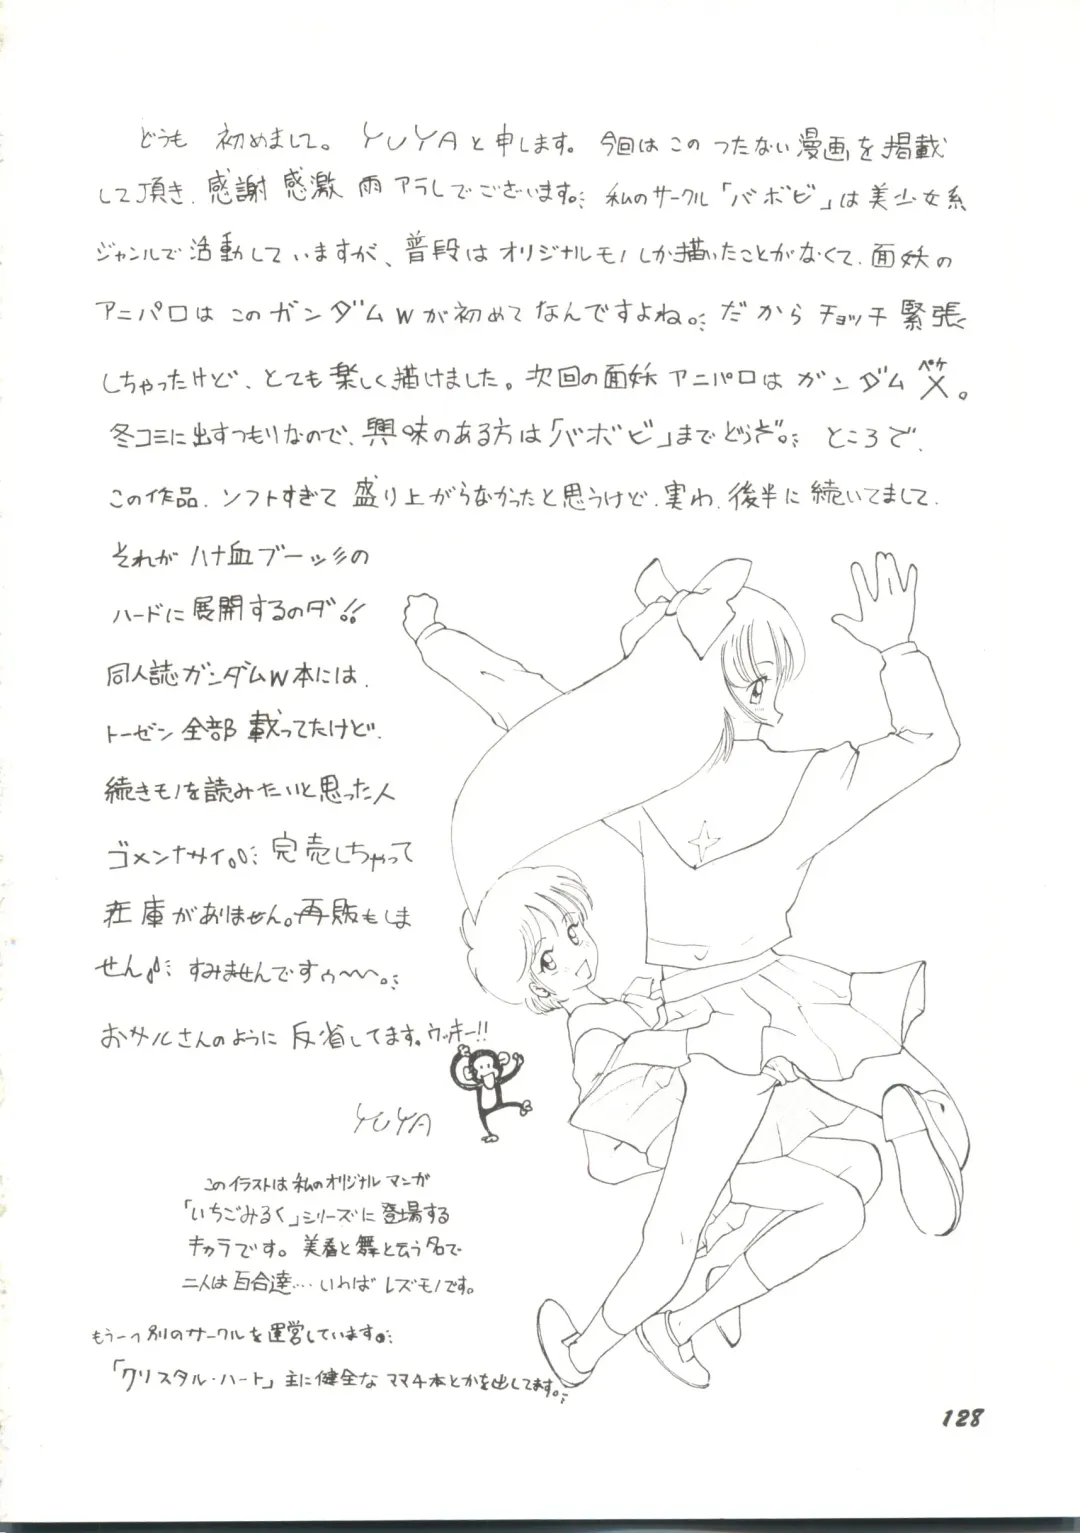 どうも 初めまして。 YUYAと申します。今回はこのつたない漫画を掲載
して頂き、感謝 感激 雨アラレでございます。私のサークル「バボビ」は美少女系
ジャンルで活動していますが、普段はオリジナルモノしか描いたことがなくて、面妖の
アニパロはこのガンダムWが初めてなんですよね。だからチョッチ緊張
しちゃったけど、とても楽しく描けました。次回の面妖アニパロはガンダムX。
ペケ
冬コミに出すつもりなので、興味のある方は「バボビ」までどうぞ。ところで、
この作品、ソフトすぎて盛り上がらなかったと思うけど、実わ、後半に続いてまして、
それがハナ血ブーッ彡の
ハードに展開するのダ!!
同人誌ガンダムW本には、
トーゼン全部載ってたけど、
続きモノを読みたいと思った人
ゴメンナサイ。完売しちゃって
在庫がありません。再販もしま
せん。すみませんですゥ〜〜。
おサルさんのように反省してます。ウッキー!!
YUYA
このイラストは私のオリジナルマンガ
「いちごみるく」シリーズに登場する
キャラです。美香と舞と云う名で
二人は百合達…いわばレズモノです。
もう一つ別のサークルを運営しています。
「クリスタル・ハート」主に健全なママ4本とかを出してます。
128